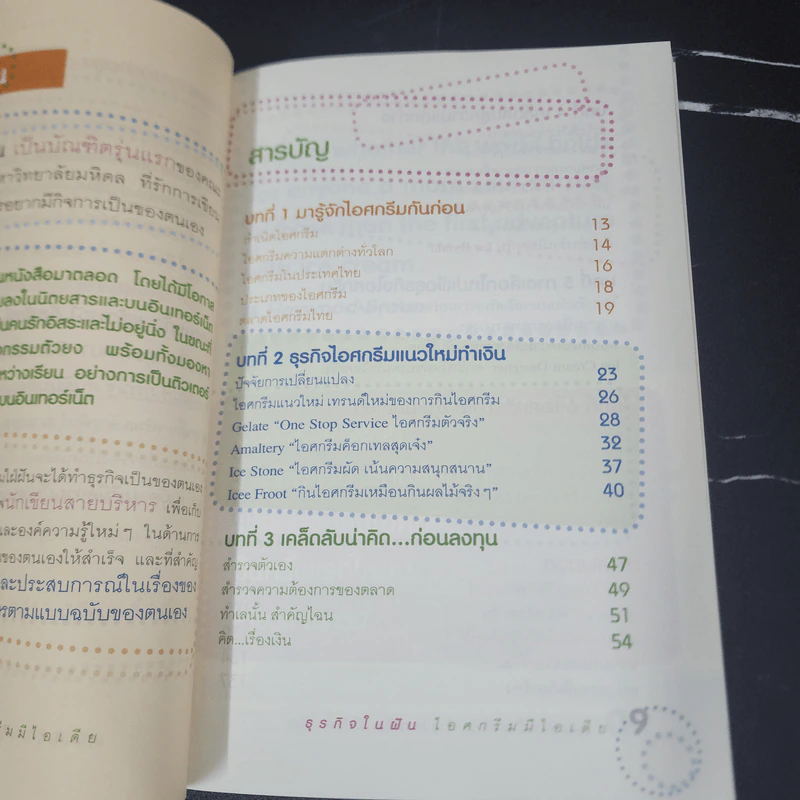 น
น เป็นบัณฑิตรุ่นแรกของคณะ
หาวิทยาลัยมหิดล ที่รักการเขียน
รอยากมีกิจการเป็นของตนเอง
นหนังสือมาตลอด โดยได้มีโอกาส
ปลงในนิตยสารและบนอินเทอร์เน็ต
ป็นคนรักอิสระและไม่อยู่นิ่ง ในขณะที่
จกรรมตัวยง พร้อมทั้งมองหา
หว่างเรียน อย่างการเป็นติวเตอร์
บนอินเทอร์เน็ต
มใฝ่ฝันจะได้ทำธุรกิจเป็นของตนเอง
นักเขียนสายบริหาร เพื่อเก็บ
และองค์ความรู้ใหม่ๆ ในด้านการ
ของตนเองให้สำเร็จ และที่สำคัญ
และประสบการณ์ในเรื่องของ
รตามแบบฉบับของตนเอง
รีมมีไอเดีย
สารบัญ
บทที่ 1 มารู้จักไอศกรีมกันก่อน
กำเนิดไอศกรีม 13
ไอศกรีมความแตกต่างทั่วโลก 14
ไอศกรีมในประเทศไทย 16
ประเภทของไอศกรีม 18
ตลาดไอศกรีมไทย 19
บทที่ 2 ธุรกิจไอศกรีมแนวใหม่ทำเงิน
ปัจจัยการเปลี่ยนแปลง 23
ไอศกรีมแนวใหม่ เทรนด์ใหม่ของการกินไอศกรีม 26
Gelate “One Stop Service ไอศกรีมตัวจริง” 28
Amaltery “ไอศกรีมค็อกเทลสุดเจ๋ง” 32
Ice Stone “ไอศกรีมผัด เน้นความสนุกสนาน” 37
Icee Froot “กินไอศกรีมเหมือนกินผลไม้จริงๆ” 40
บทที่ 3 เคล็ดลับน่าคิด...ก่อนลงทุน
สำรวจตัวเอง 47
สำรวจความต้องการของตลาด 49
ทำเลนั้น สำคัญไฉน 51
คิด...เรื่องเงิน 54
ธุรกิจในฝัน ไอศกรีมมีไอเดีย 9